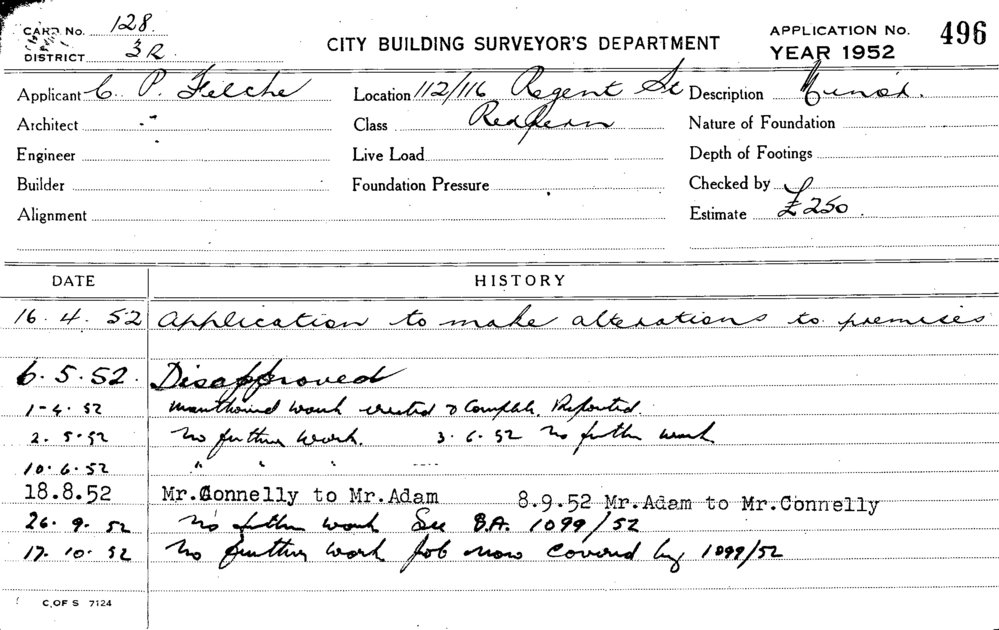 CARD No. 128.
DISTRICT 3R
CITY BUILDING SURVEYOR'S DEPARTMENT
APPLICATION No. 496
YEAR 1952
Applicant C. P. Felche
Location 112/116 Regent St
Description
Architect -"
Class Redfern
Nature of Foundation
Engineer
Live Load
Depth of Footings
Builder
Foundation Pressure
Checked by
Alignment
Estimate £250.
DATE HISTORY
16.4.52 Application to make alterations to premises
6.5.52. Disapproved
1-4.52 work erected & Complete. Reported.
2.5.52 No further work. 3.6.52 No further work
10.6.52 " " " ----
18.8.52 Mr.Connelly to Mr.Adam 8.9.52 Mr.Adam to Mr.Connelly
26.9.52 No further work See B.A. 1099/52
17.10.52 No further work Job now covered by 1099/52
C. OF S 7124